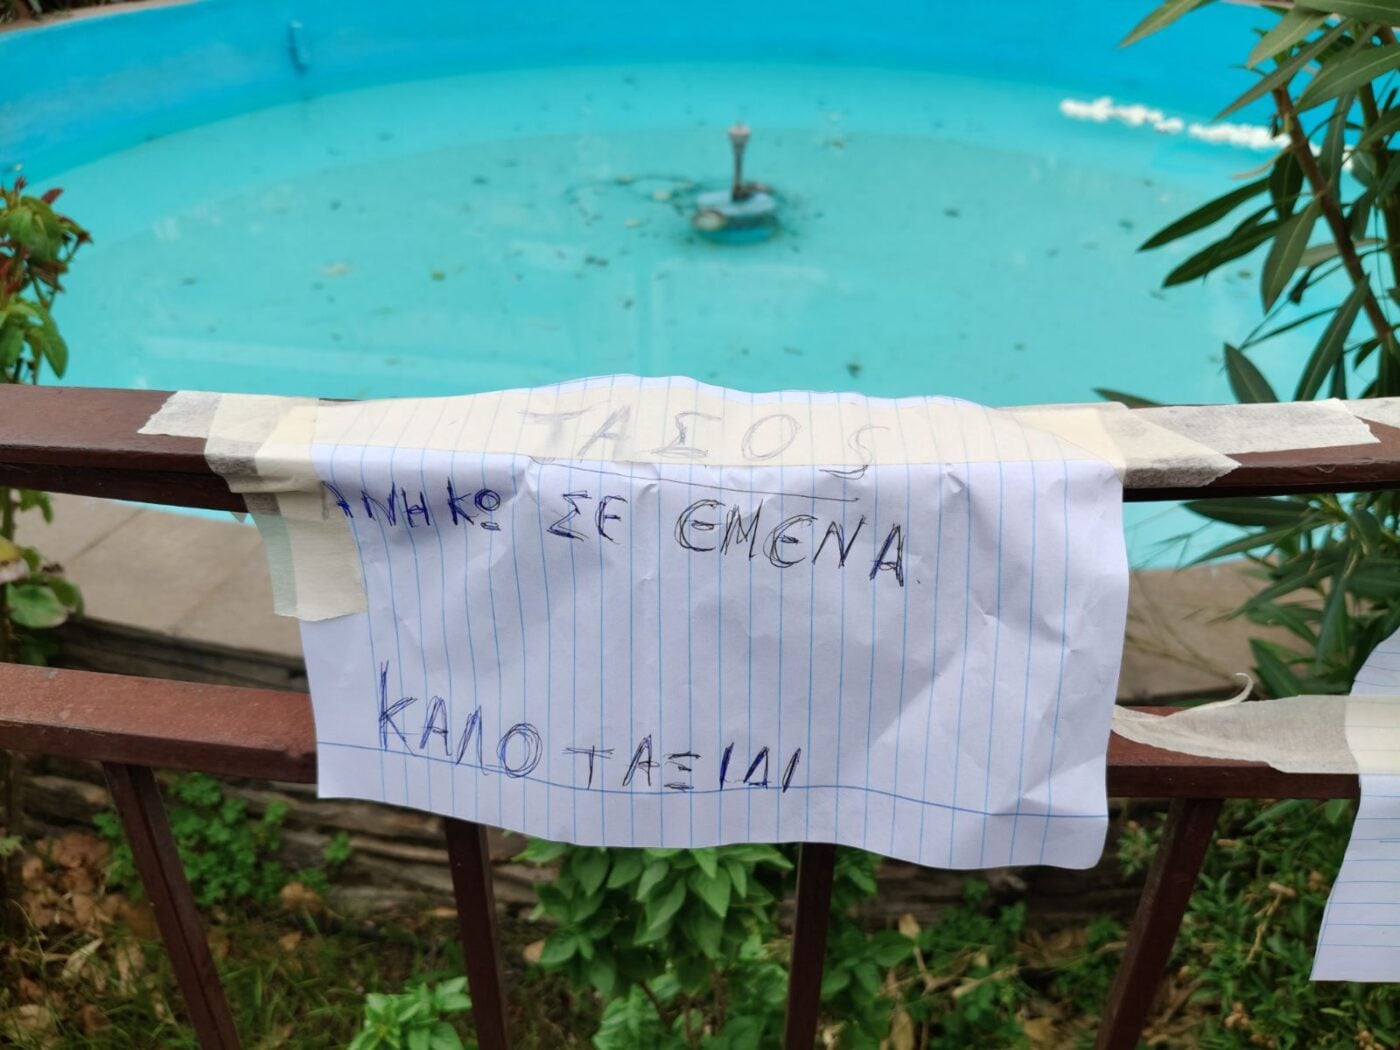 ΤΑΣΟS
ΑΝΗΚΩ ΣΕ ΕΜΕΝΑ
ΚΑΛΟ ΤΑΞΙΔΙ